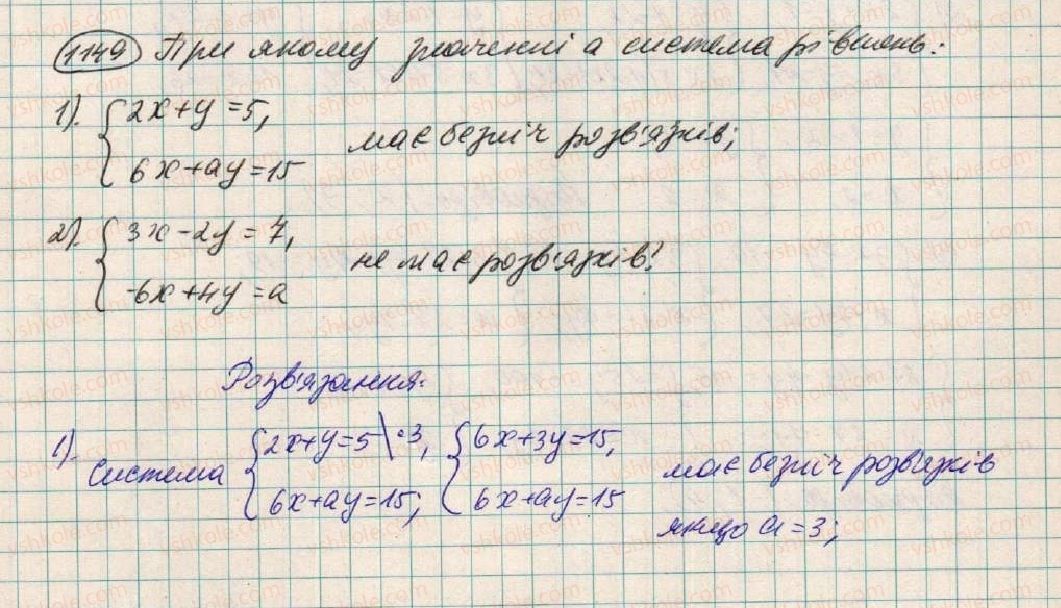 1149 При якому значенні а система рівнень:
1). { 2x+y=5,
6x+ay=15 має безліч розв'язків;
2). { 3x-2y=7,
-6x+4y=a не має розв'язків?
Розв'язання:
1). Система { 2x+y=5 \·3, { 6x+3y=15, має безліч розв'язків
6x+ay=15; 6x+ay=15 якщо a=3;